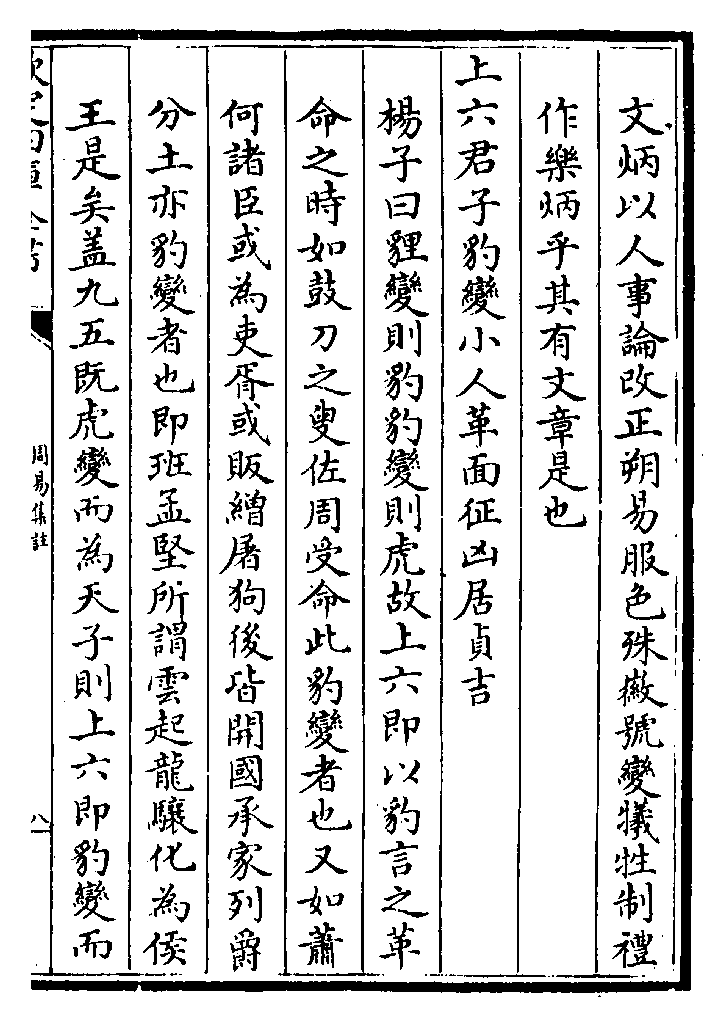 文炳以人事論改正朔易服色殊徽號變犧牲制禮
作樂炳乎其有文章是也
上六君子豹變小人革面征凶居貞吉
楊子曰貍變則豹豹變則虎故上六即以豹言之革
命之時如鼓刀之叟佐周受命此豹變者也又如蕭
何諸臣或為吏胥或販繒屠狗後皆開國承家列爵
分土亦豹變者也即班孟堅所謂雲起龍驤化為侯
王是矣盖九五既虎變而為天子則上六即豹變而
周易集註
八